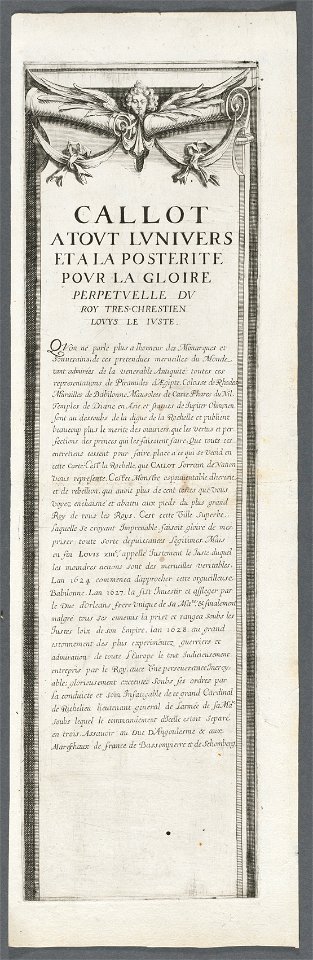 CALLOT
A TOVT LVNIVERS
ET A LA POSTERITE
POVR LA GLOIRE
PERPETVELLE DV
ROY TRES-CHRESTIEN
LOVYS LE IVSTE.
Qu'on ne parle plus a lhonneur des Monarques et
Souverains, de ces pretendues merveilles du Monde,
tant admirées de la venerable Antiquité toutes ces
representations de Piramides d'Ægipte, Colosse de Rhodes
Murailles de Babilonne, Mausolées de Carie, Phares du Nil
Temples de Diane en Asie et statues de Iupiter Olimpien
sont au dessoubs de la digue de la Rochelle et preschent
beaucoup plus le merite des ouvriers que les vertus et per-
fections des princes qui les faisoient faire. Que touts ces
entretiens cessent pour faire place a ce qui se vend en
cette Carte. C'est la Rochelle, que CALLOT Lorrain de Nation
vous represente. Cest ce Monstre espouventable d'heresie
et de rebellion, qui avoit plus de cent testes que vous
voyez enchaisné et abatu aux pieds du plus grand
Roy de tous les Roys. Cest cette Ville Superbe,
laquelle se croyant Imprenable faisoit gloire de mes-
priser toute sorte de puissances Legitimes. Mais
en fin LOVIS XIII. appellé Iustement le Iuste duquel
les moindres actions sont des merveilles veritables.
Lan 1624 commenca d'approcher cette orgueilleuse
Babilonne. Lan 1627. la fist Investir et assieger par
le Duc d'Orleans frere Unique de sa Maté. et finalement
malgré tous ses ennemis la prist et rangea soubs les
Iustes loix de son Empire, lan 1628. au grand
estonnement des plus experimentez guerriers et
admiration de toute l'Europe le tout Iudicieusement
entrepris par le Roy, avec Une perseverance Incroy-
able; glorieusement executé soubs ses ordres par
la conduicte et soin Infatigable de ce grand Cardinal
de Richelieu lieutenant general de larmée de sa Maté
soubs lequel le commandement dicelle estoit separé
en trois. Assavoir au Duc D'Angoulesme & aux
Mareschaux de france de Bassompierre et de Schomberg.